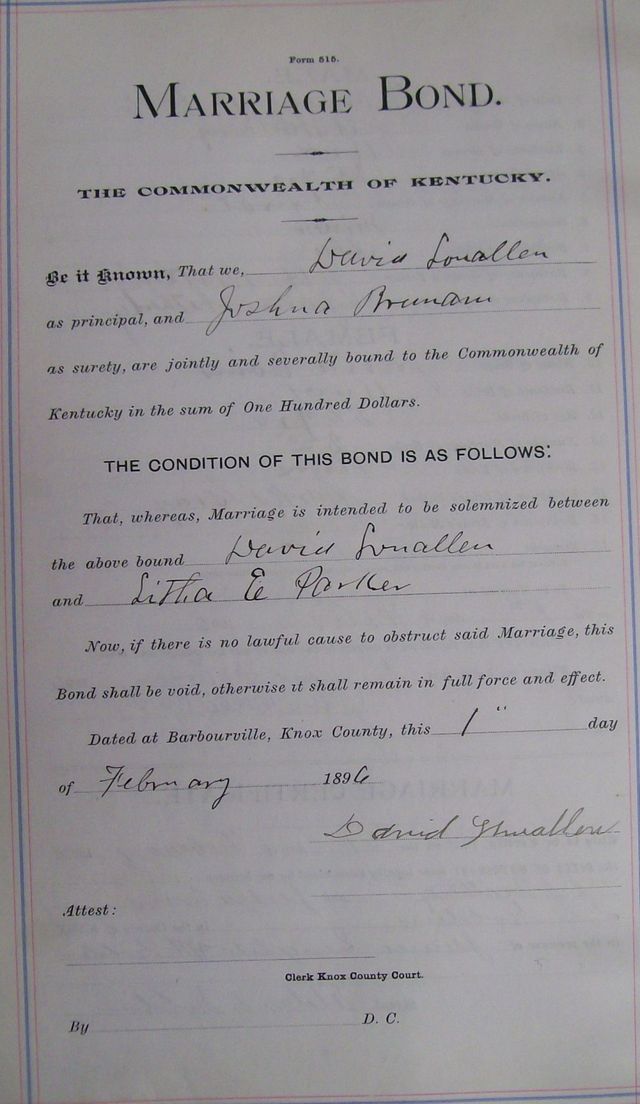 Form 515.
MARRIAGE BOND.
THE COMMONWEALTH OF KENTUCKY.
Be it Known, That we, David Smallen
as principal, and Joshua
as surety, are jointly and severally bound to the Commonwealth of
Kentucky in the sum of One Hundred Dollars.
THE CONDITION OF THIS BOND IS AS FOLLOWS:
That, whereas, Marriage is intended to be solemnized between
the above bound David Smallen
and Litha E Parker
Now, if there is no lawful cause to obstruct said Marriage, this
Bond shall be void, otherwise it shall remain in full force and effect.
Dated at Barbourville, Knox County, this 1" day
of February 1896
David
Attest:
Clerk Knox County Court.
By D. C.